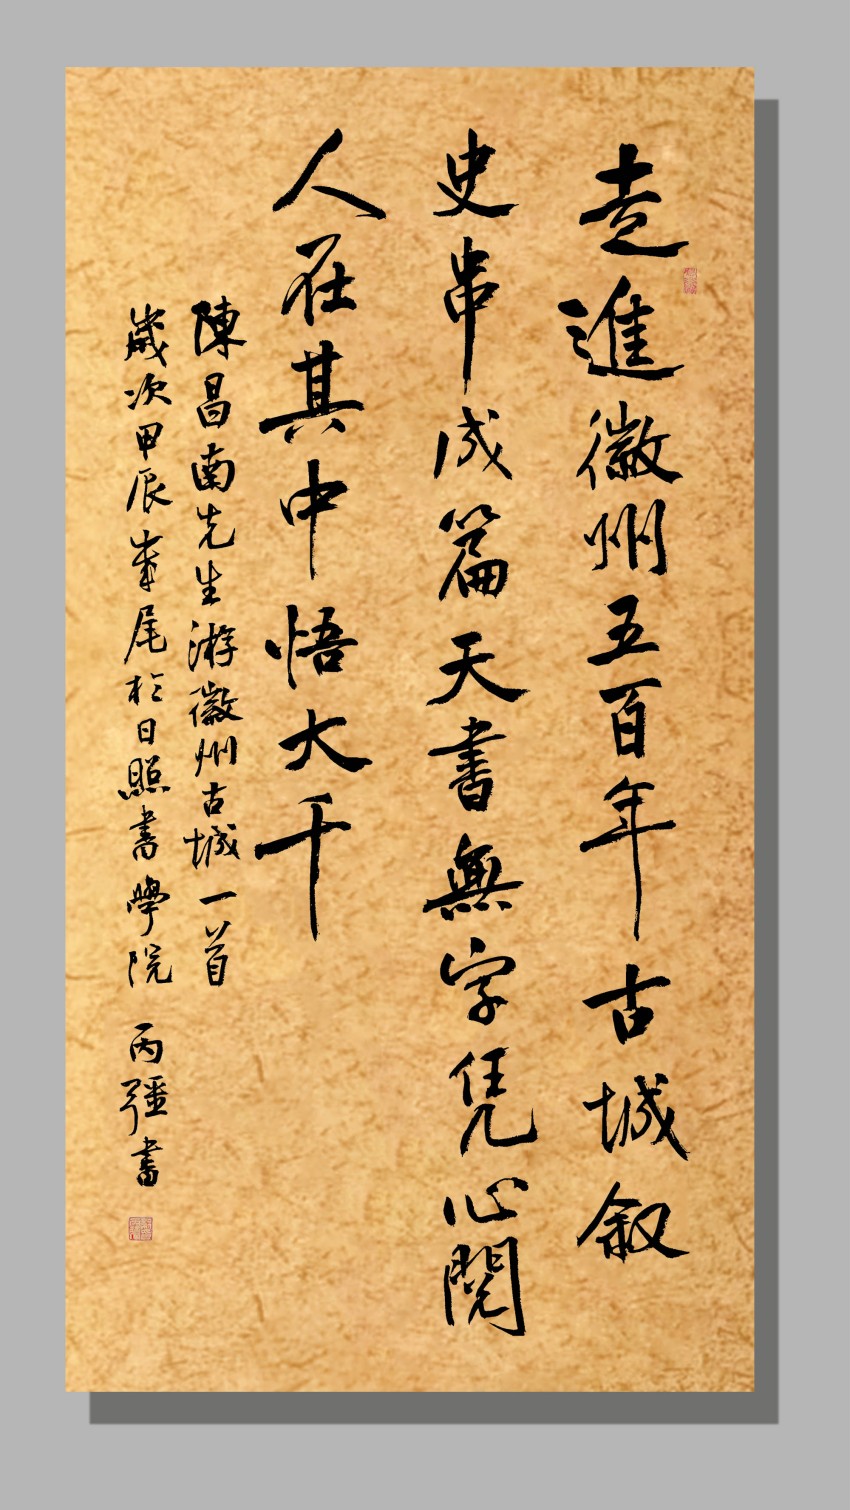 走進徽州五百年古城叙
史串成篇天書無字凭心閲
人在其中悟大千
陳昌南先生游徽州古城一首
歲次甲辰年尾於日照書學院 丙疆書